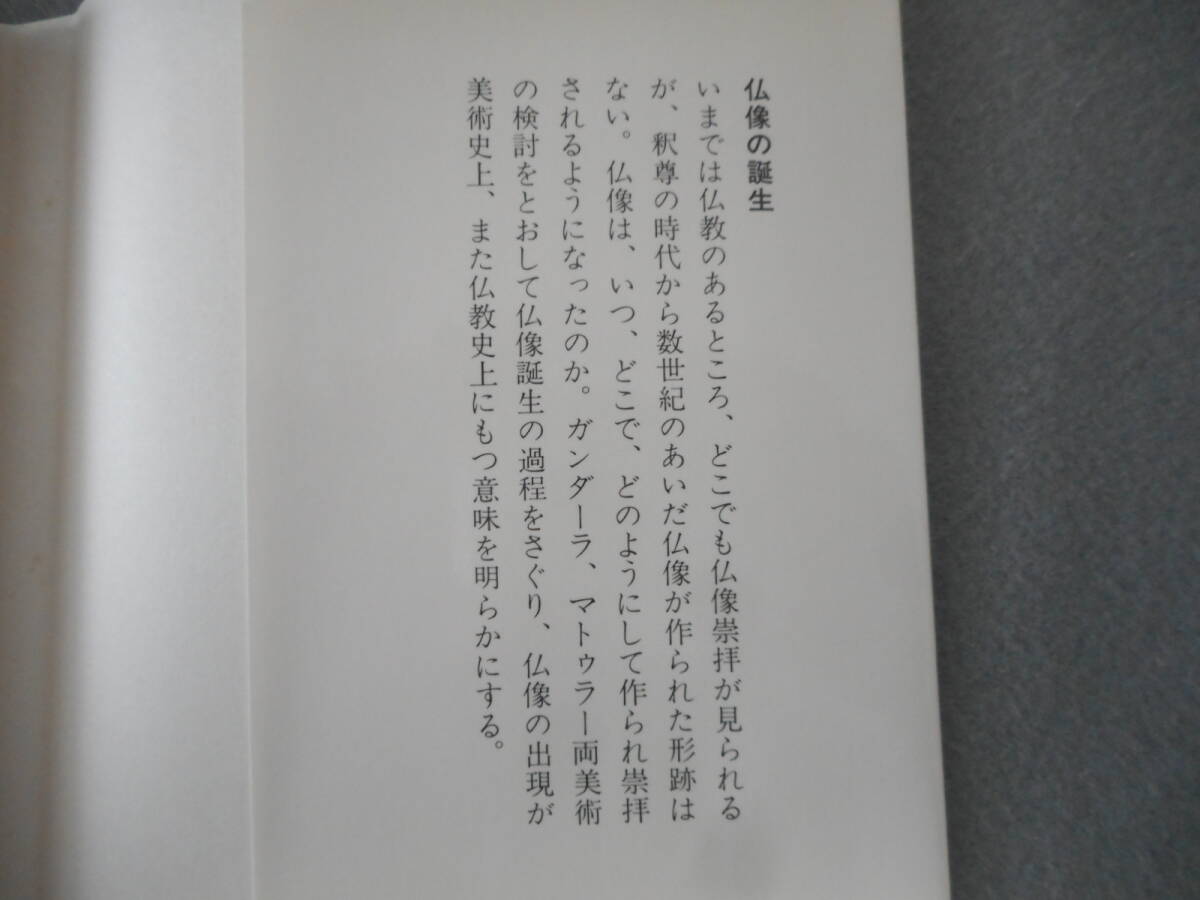 仏像の誕生
いまでは仏教のあるところ、どこでも仏像崇拝が見られる
が、釈尊の時代から数世紀のあいだ仏像が作られた形跡は
ない。仏像は、いつ、どこで、どのようにして作られ崇拝
されるようになったのか。ガンダーラ、マトゥラー両美術
の検討をとおして仏像誕生の過程をさぐり、仏像の出現が
美術史上、また仏教史上にもつ意味を明らかにする。